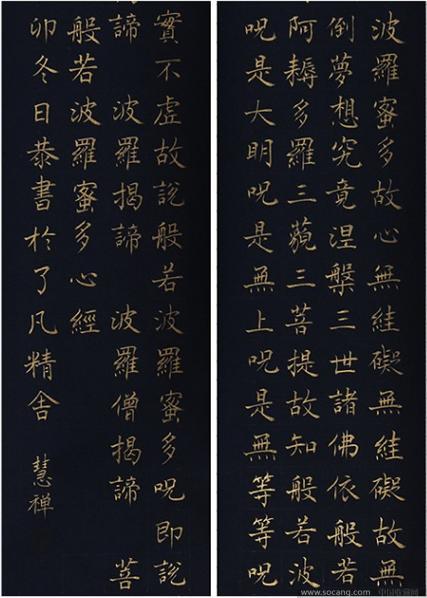 波羅蜜多故心無絓礙無絓礙故無
倒夢想究竟涅槃三世諸佛依般若
阿耨多羅三藐三菩提故知般若波
呪是大明呪是無上呪是無等等呪
實不虛故說般若波羅蜜多呪即說
諦 波羅揭諦 波羅僧揭諦 菩
般若波羅蜜多心經
卯冬日恭書於了凡精舍 慧禅
www.socang.com